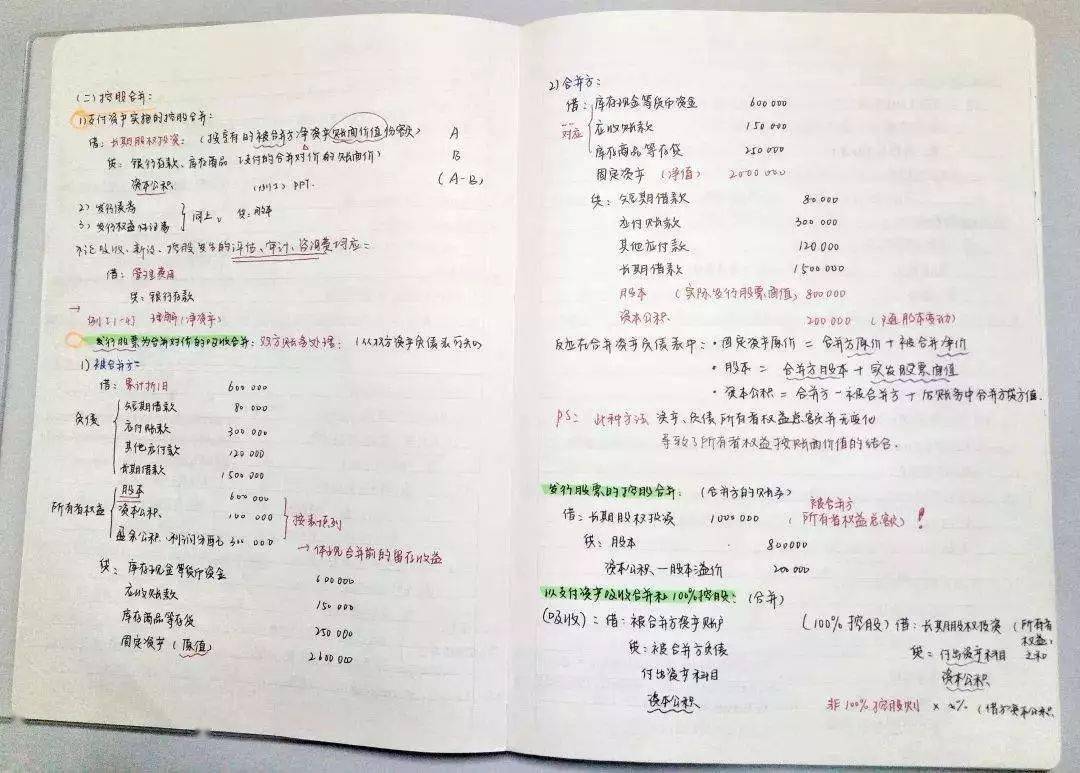 (二)控股合并:
1)支付资产实施的控股合并:
借:长期股权投资:(按享有的被合并方净资产账面价值份额) A
贷:银行存款、库存商品(支付的合并对价的账面价) B
资本公积 (例1) PPT. (A-B)
2)发行债券
3)发行权益性证券 } 同上、贷:股本
不论吸收、新设、控股发生的评估、审计、咨询费均应=
借:管理费用
贷:银行存款
→ 例2[-4] 理解(净资产)
发行股票为合并对价的吸收合并:双方账务处理:(从双方资产负债表可知)
1)被合并方=
借:累计折旧 600 000
负债 { 短期借款 80 000
应付账款 300 000
其他应付款 120 000
长期借款 1500 000
所有者权益 { 股本 600 000
资本公积 100 000 } 按表顺列
盈余公积、利润分配 300 000 → 体现合并前的留存收益
贷:库存现金等货币资金 600 000
应收账款 150 000
库存商品等存货 250 000
固定资产(原值) 2600 000
2)合并方:
借:库存现金等货币资金 600 000
对应 应收账款 150 000
库存商品等存货 250 000
固定资产(净值) 2000 000
贷:短期借款 80 000
应付账款 300 000
其他应付款 120 000
长期借款 1500 000
股本 (实际发行股票面值) 800 000
资本公积 200 000 (随股本变动)
反应在合并资产负债表中:·固定资产原价 = 合并方原价 + 被合并净价
·股本 = 合并方股本 + 实发股票面值
·资本公积 = 合并方-被合并方 + 后账务中合并方贷方值.
PS: 此种方法 资产、负债所有者权益总额并无变化
导致了所有者权益按账面价值的结合.
发行股票的控股合并:(合并方的账务)
借:长期股权投资 1000 000 (被合并方所有者权益总额)!
贷:股本 800000
资本公积—股本溢价 200 000
以支付资产吸收合并和100%控股:(合并)
(吸收)=借:被合并方资产账户
贷:被合并方负债
付出资产科目
资本公积
(100%控股)借:长期股权投资 (所有者权益之和)
贷=付出资产科目
资本公积
非100%控股则 × x% (借方资本公积